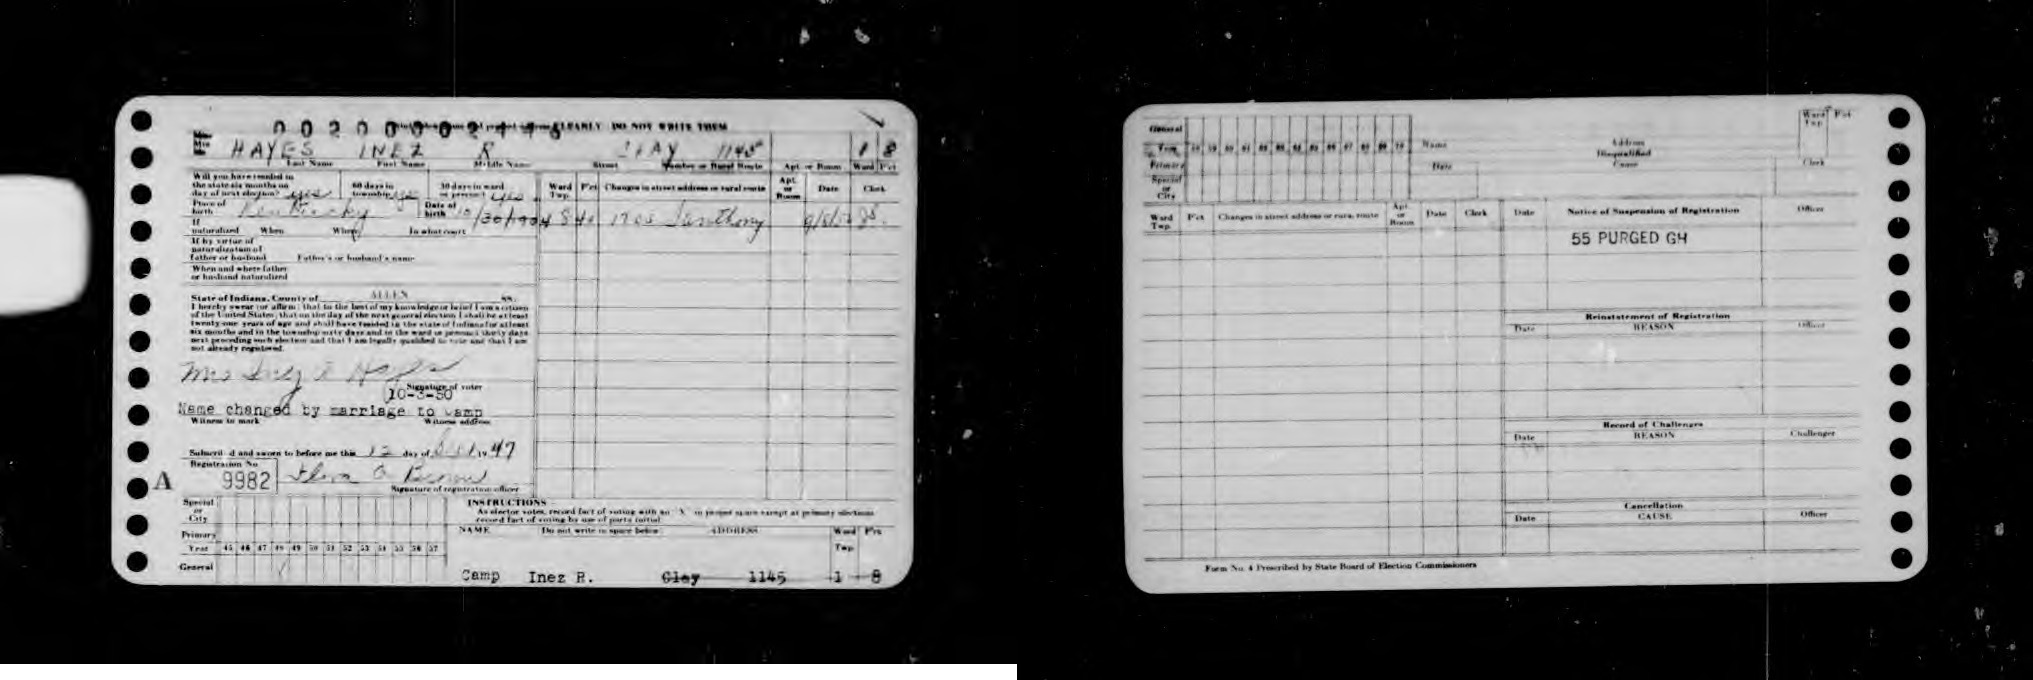 0020000244
CLEARLY DO NOT WRITE THEM
HAYES INEZ R CLAY 1145 1 8
Last Name First Name Middle Name Street Number or Rural Route Apt. or Room Ward Pct
Will you have resided in
the state six months on
day of next election? yes
60 days in
township yes
30 days in ward
or precinct yes
Ward
Twp. Pct Changes in street address or rural route Apt.
or
Room Date Clerk
Place of
birth Kentucky
Date of
birth
S Anthony
If
naturalized When Where In what court
If by virtue of
naturalization of
father or husband Father's or husband's name
When and where father
or husband naturalized
State of Indiana, County of ALLEN ss.
I hereby swear (or affirm) that to the best of my knowledge or belief I am a citizen
of the United States; that on the day of the next general election I shall be at least
twenty-one years of age and shall have resided in the state of Indiana for at least
six months and in the township sixty days and in the ward or precinct thirty days
next preceding such election and that I am legally qualified to vote and that I am
not already registered.
Mrs Inez R Hayes
Signature of voter
10-3-50
Name changed by marriage to Camp
Witness to mark Witness address
Subscribed and sworn to before me this 12 day of 19 47
Registration No
A 9982
Signature of registration officer
Special
or
City
Primary
Year 45 46 47 48 49 50 51 52 53 54 55 56 57
General
INSTRUCTIONS
As elector votes, record fact of voting with an "X" in proper space except at primary elections
record fact of voting by use of party initial
NAME Do not write in space below ADDRESS Ward
Twp. Pct
Camp Inez R. Clay 1145 1 8
General
Year
Primary
Special
or
City
Name Address Ward
Twp Pct
Disqualified
Date Cause Clerk
Ward
Twp. Pct Changes in street address or rural route Apt.
or
Room Date Clerk
Date Notice of Suspension of Registration Officer
55 PURGED GH
Reinstatement of Registration
Date REASON Officer
Record of Challenges
Date REASON Challenger
Cancellation
Date CAUSE Officer
Form No. 4 Prescribed by State Board of Election Commissioners